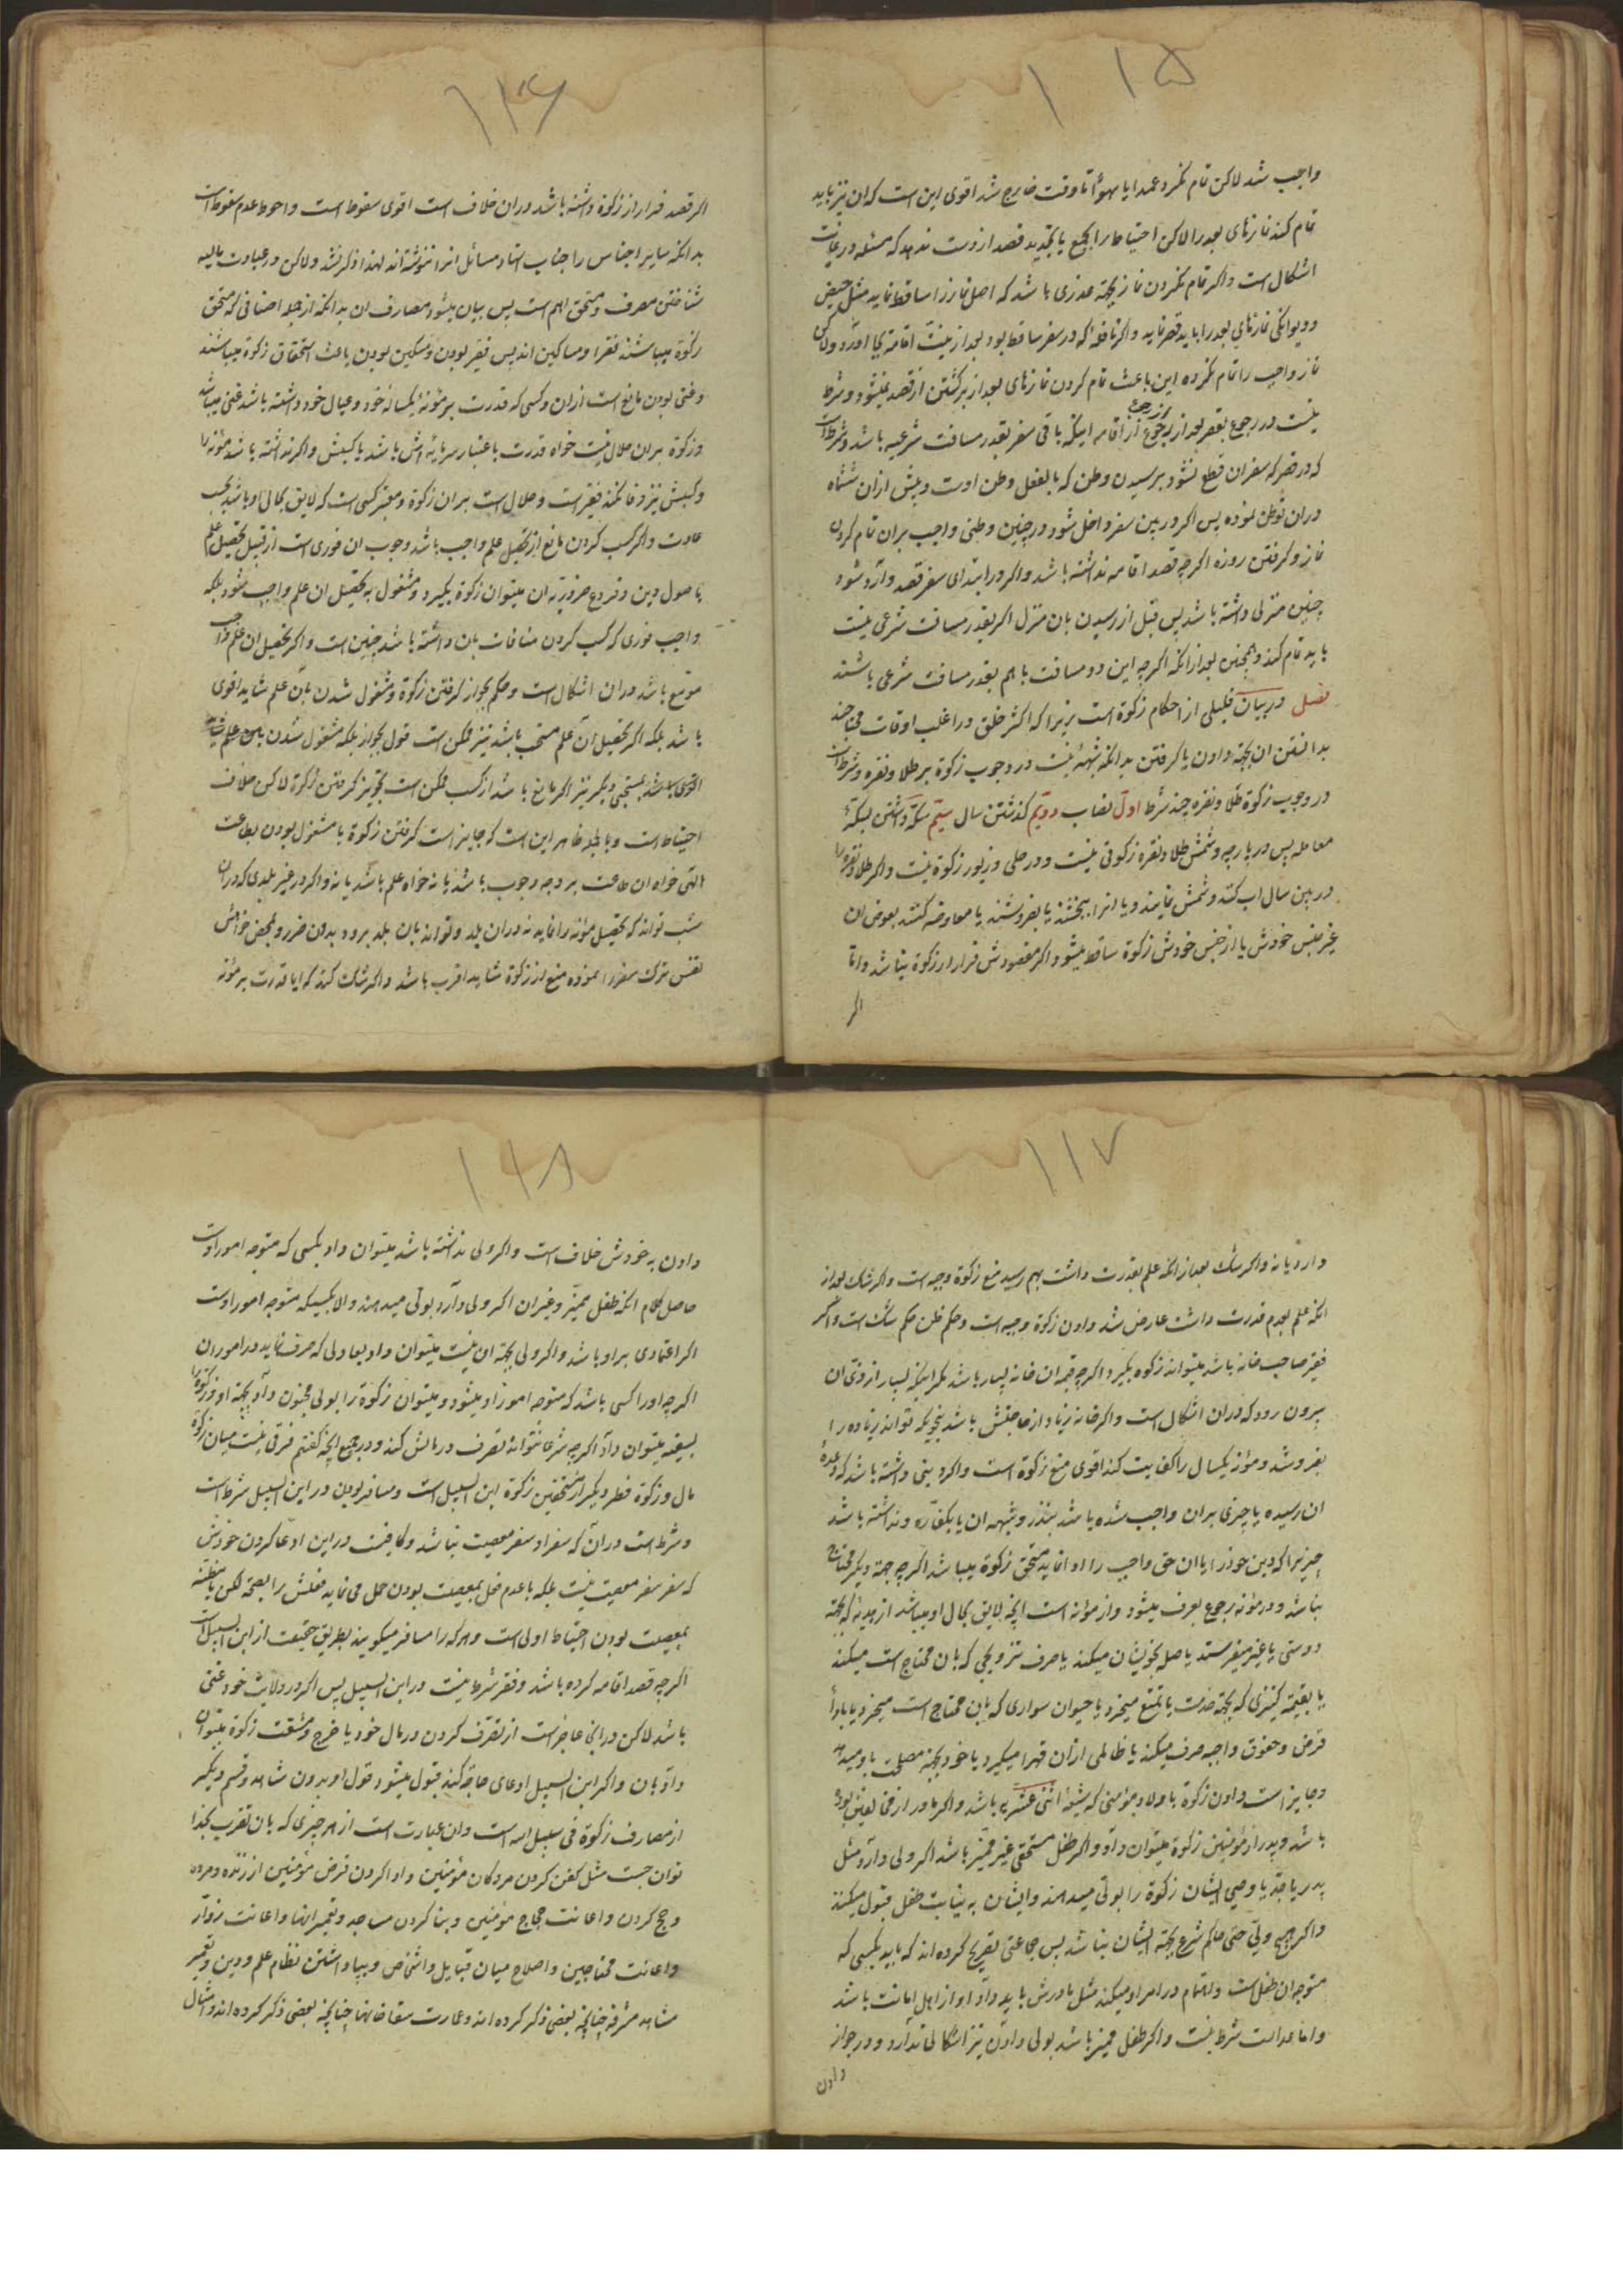 ۱۱۵
واجب شد لاکن تمام نکرد عمدا یا سهوًا تا وقت خارج شد اقوی این است که ان نیز باید
تمام کند نمازهای بعد را لاکن احتیاط را بجمع یا بتجدید قصد از دست ندهد که مسئله در غایت
اشکال است و اکر تمام نکردن نماز بجهة عذری باشد که اصل نماز را ساقط نماید مثل حیض
و دیوانکی نمازهای بعد را باید قصر نماید و اکر نافله که در سفر ساقط بود بعد از نیت اقامه بجا اورد ولاکن
نماز واجب را تمام نکرده این باعث تمام کردن نمازهای بعد از برکشتن از قصد نمیشود و شرط
نیست در رجوع بقصر بعد از رجوع از اقامه اینکه باقی سفر بقدر مسافت شرعیه باشد و شرط است
که در قصر که سفر ان قطع نشود برسیدن وطن که بالفعل وطن اوست و پیش از ان ششماه
در ان توطن نموده پس اکر در بین سفر داخل شود در چنین وطنی واجب بر ان تمام کردن
نماز و کرفتن روزه اکرچه قصد اقامه نداشته باشد و اکر در ابتدای سفر قصد وارد شود
چنین منزلی داشته باشد پس قبل از رسیدن بان منزل اکر بقدر مسافت شرعی نیست
باید تمام کند و همچنین بعد از انکه اکرچه این دو مسافت با هم بقدر مسافت شرعی باشند
فصل در بیان قلیلی از احکام زکوة است زیرا که اکثر خلق در اغلب اوقات محتاجند
بدانستن ان بجهة دادن یا کرفتن بدانکه شبهه نیست در وجوب زکوة بر طلا و نقره و شرط است
در وجوب زکوة طلا و نقره چند شرط اول نصاب دویم کذشتن سال سیّم سکّه داشتن بسکّهٔ
معامله پس در پارچه و شمش طلا و نقره زکوتی نیست و در حلی و زیور زکوة نیست و اکر طلا و نقره را
در بین سال اب کنند و شمش نمایند و یا انرا ببخشند یا بفروشند یا معاوضه کنند بعوض ان
غیر جنس خودش یا از جنس خودش زکوة ساقط میشود اکر مقصودش فرار از زکوة نباشد و اما
اکر
۱۱۶
اکر قصد فرار از زکوة داشته باشد در ان خلاف است اقوی سقوط است و احوط عدم سقوط است
بدانکه سایر اجناس را جناب استاد مسائل انرا ننوشته‌اند لهذا ذکر نشد ولاکن در عبادت مالیه
شناختن مصرف و مستحق اهم است پس بیان میشود مصارف ان بدانکه از جمله اصنافی که مستحق
زکوة میباشند فقرا و مساکین اند پس فقیر بودن و مسکین بودن باعث استحقاق زکوة میباشند
و غنی بودن مانع است از ان و کسی که قدرت بر مؤنهٔ یکساله خود و عیال خود داشته باشد غنی میباشد
و زکوة بر ان حلال نیست خواه قدرت باعتبار سرمایه‌اش باشد یا کسبش و اکر نداشته باشد مؤنه را
و کسبش نیز وفا نکند فقیر است و حلال است بر ان زکوة و معتبر کسبی است که لایق بحال او باشد بحسب
عادت و اکر کسب کردن مانع از تحصیل علم واجب باشد وجوب ان فوری است از قبیل تحصیل علم
باصول دین و فروع ضروریه ان میتوان زکوة بکیرد و مشغول به تحصیل ان علم واجب شود بلکه
واجب فوری که کسب کردن منافات بان داشته باشد چنین است و اکر تحصیل ان علم واجب
موسّع باشد در ان اشکال است و حکم بجواز کرفتن زکوة و مشغول شدن بان علم شاید اقوی
باشد بلکه اکر تحصیل ان علم مستحب باشد نیز ممکن است قول بجواز بلکه مشغول شدن
مستحبی دیکر نیز اکر مانع باشد از کسب ممکن است تجویز کرفتن زکوة لاکن خلاف
احتیاط است و بالجمله ظاهر این است که جایز است کرفتن زکوة با مشغول بودن بطاعت
الهی خواه ان طاعت بر وجه وجوب باشد یا نه خواه علم باشد یا نه و اکر در غیر بلدی که در ان
تواند که تحصیل مؤنه را نماید نه در ان بلد و تواند بان بلد برود بدون ضرر و بمحض خواهش
نفس ترک سفر را نموده منع از زکوة شاید اقرب باشد و اکر شک کند که ایا قدرت بر مؤنه
۱۱۷
دارد یا نه و اکر شک بعد از انکه علم بقدرت داشت بهم رسید منع زکوة وجیه است و اکر شک بعد از
انکه علم بعدم قدرت داشت عارض شد دادن زکوة وجیه است و حکم ظن حکم شک است و اکر
فقیر صاحب خانه باشد میتواند زکوة بکیرد اکرچه قیمة ان خانه بسیار باشد مکر اینکه بسیار از زیّ ان
بیرون رود که در ان اشکال است و اکر خانه زیاد از حاجتش باشد بنحویکه تواند زیاده را
بفروشد و مؤنه یکسال را کفایت کند اقوی منع زکوة است و اکر دینی داشته باشد که وعدهٔ
ان رسیده یا چیزی بر ان واجب شده باشد بنذر و شبهه ان یا بکفّاره و نداشته باشد
چیزیرا که دین خود را یا ان حق واجب را ادا نماید مستحق زکوة میباشد اکرچه بجهة دیکر محتاج
نباشد و در مؤنه رجوع بعرف میشود و از مؤنه است انچه لایق بحال او میباشد از هدیه که بجهة
دوستی یا غیر میفرستد یا صله بخویشان میکند یا صرف تزویجی که بان محتاج است میکند
یا بقیمة کنیزی که بجهة خدمت یا تمتع میخرد یا حیوان سواری که بان محتاج است میخرد یا بادأ
قرض و حقوق واجبه صرف میکند یا ظالمی از ان قهرا میکیرد یا خود بجهة مصلحت باو میدهد
و جایز است دادن زکوة باولاد مؤمنی که شیعهٔ اثنی عشریه باشد و اکر مادر از مخالفین بوده
باشد و پدر از مؤمنین زکوة میتوان داد و اکر طفل مستحق غیر ممیّز باشد اکر ولی دارد مثل
پدر یا جدّ یا وصی ایشان زکوة را بولّی میدهند و ایشان به نیابت طفل قبول میکنند
و اکر هیچ ولیّ حتی حاکم شرع بجهة ایشان نباشد پس جماعتی تصریح کرده‌اند که باید بکسی که
متوجه ان طفل است و اهتمام در امر او میکند مثل مادرش باید داد او از اهل امانت باشد
و اما عدالت شرط نیست و اکر طفل ممیز باشد بولی دادن نیز اشکالی ندارد و در جواز
دادن
۱۱۸
دادن به خودش خلاف است و اکر ولی نداشته باشد میتوان داد بکسی که متوجه امور اوست
حاصل کلام انکه طفل ممیّز و غیر ان اکر ولی دارد بولّی میدهند و الا بکسیکه متوجه امور اوست
اکر اعتمادی بر او باشد و اکر ولی بجهة ان نیست میتوان داد بعادلی که صرف نماید در امور ان
اکرچه او را کسی باشد که متوجه امور او میشود و میتوان زکوة را بولی مجنون داد بجهة او و زکوة را
بسفیه میتوان داد اکرچه شرعا نتواند تصرف در مالش کند و در جمیع انچه کفتم فرقی نیست میان زکوة
مال و زکوة فطر دیکر از مستحقین زکوة ابن السبیل است و مسافر بودن در ابن السبیل شرط است
و شرط است در ان که سفر او سفر معصیت نباشد و کافیست در این ادعا کردن خودش
که سفر سفر معصیت نیست بلکه با عدم فعل بمعصیت بودن حمل می‌نماید فعلش را بصحّة لکن با مظنّه
بمعصیت بودن احتیاط اولی است و هرکه را مسافر میکویند بطریق حقیقت از ابن السبیل است
اکرچه قصد اقامه کرده باشد و فقر شرط نیست در ابن السبیل پس اکر در ولایت خود غنی
باشد لاکن در انجا عاجز است از تصرّف کردن در مال خود یا خرج و مشقت زکوة میتوان
داد بان و اکر ابن السبیل ادعای حاجة کند قبول میشود قول او بدون شاهد و قسم و دیکر
از مصارف زکوة فی سبیل الله است و ان عبارت است از هر چیزی که بان تقرب بخدا
توان جست مثل کفن کردن مردکان مؤمنین و ادا کردن قرض مؤمنین از زنده و مرده
و حج کردن و اعانت حجاج مؤمنین و بنا کردن مساجد و تعمیر انها و اعانت زوّار
و اعانت محتاجین و اصلاح میان قبایل و اشخاص و بپا داشتن نظام علم و دین و تعمیر
مشاهد مشرفه چنانچه بعضی ذکر کرده‌اند و عمارت سقاخانها چنانچه بعضی ذکر کرده‌اند و امثال